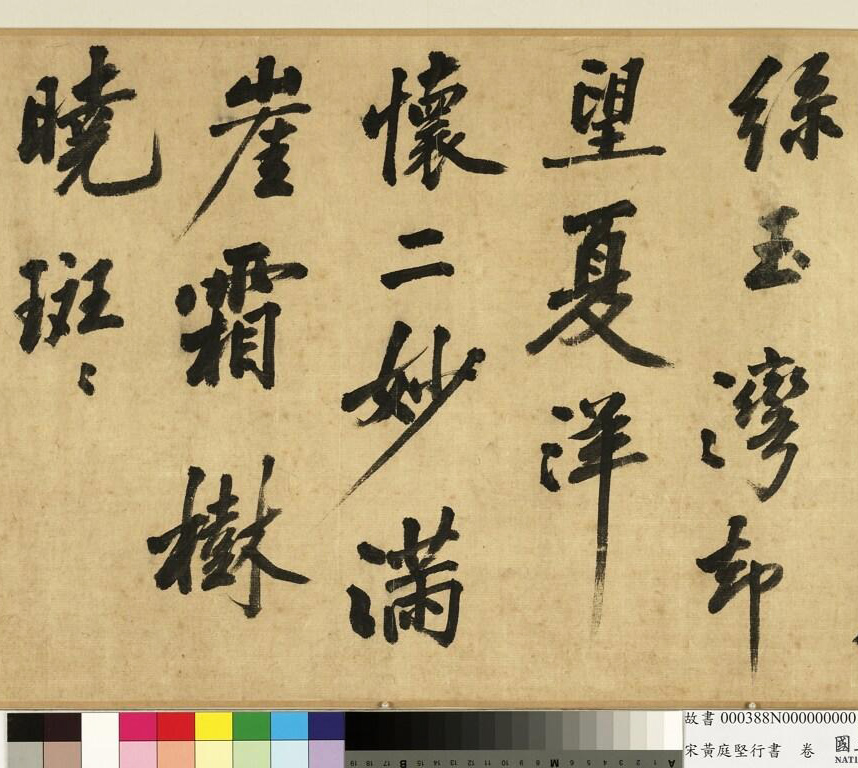 絲玉灣却
望夏洋
懷二妙滿
崖霜樹
曉班〻
故書 000388N000000000
宋黃庭堅行書 卷
國
NATI